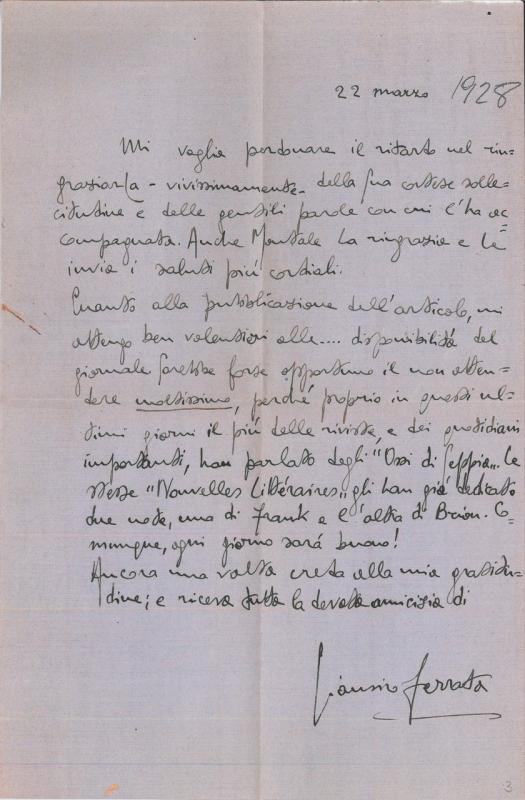 22 marzo 1928
Mi voglia perdonare il ritardo nel rin=
graziarLa - vivissimamente - della Sua cortese solle=
citudine e delle gentili parole con cui l'ha ac=
compagnata. Anche Montale La ringrazia e Le
invia i saluti più cordiali.
Quanto alla pubblicazione dell'articolo, mi
attengo ben volentieri alle.... disponibilità del
giornale. Sarebbe forse opportuno il non atten=
dere moltissimo, perché proprio in questi ul=
timi giorni il più delle riviste, e dei quotidiani
importanti, han parlato degli "Ossi di Seppia". Le
stesse "Nouvelles Littéraires" gli han già dedicato
due note, una di Frank e l'altra di Brion. Co=
munque, ogni giorno sarà buono!
Ancora una volta creda alla mia gratitu=
dine; e riceva tutta la devota amicizia di
Giansiro Ferrata
3